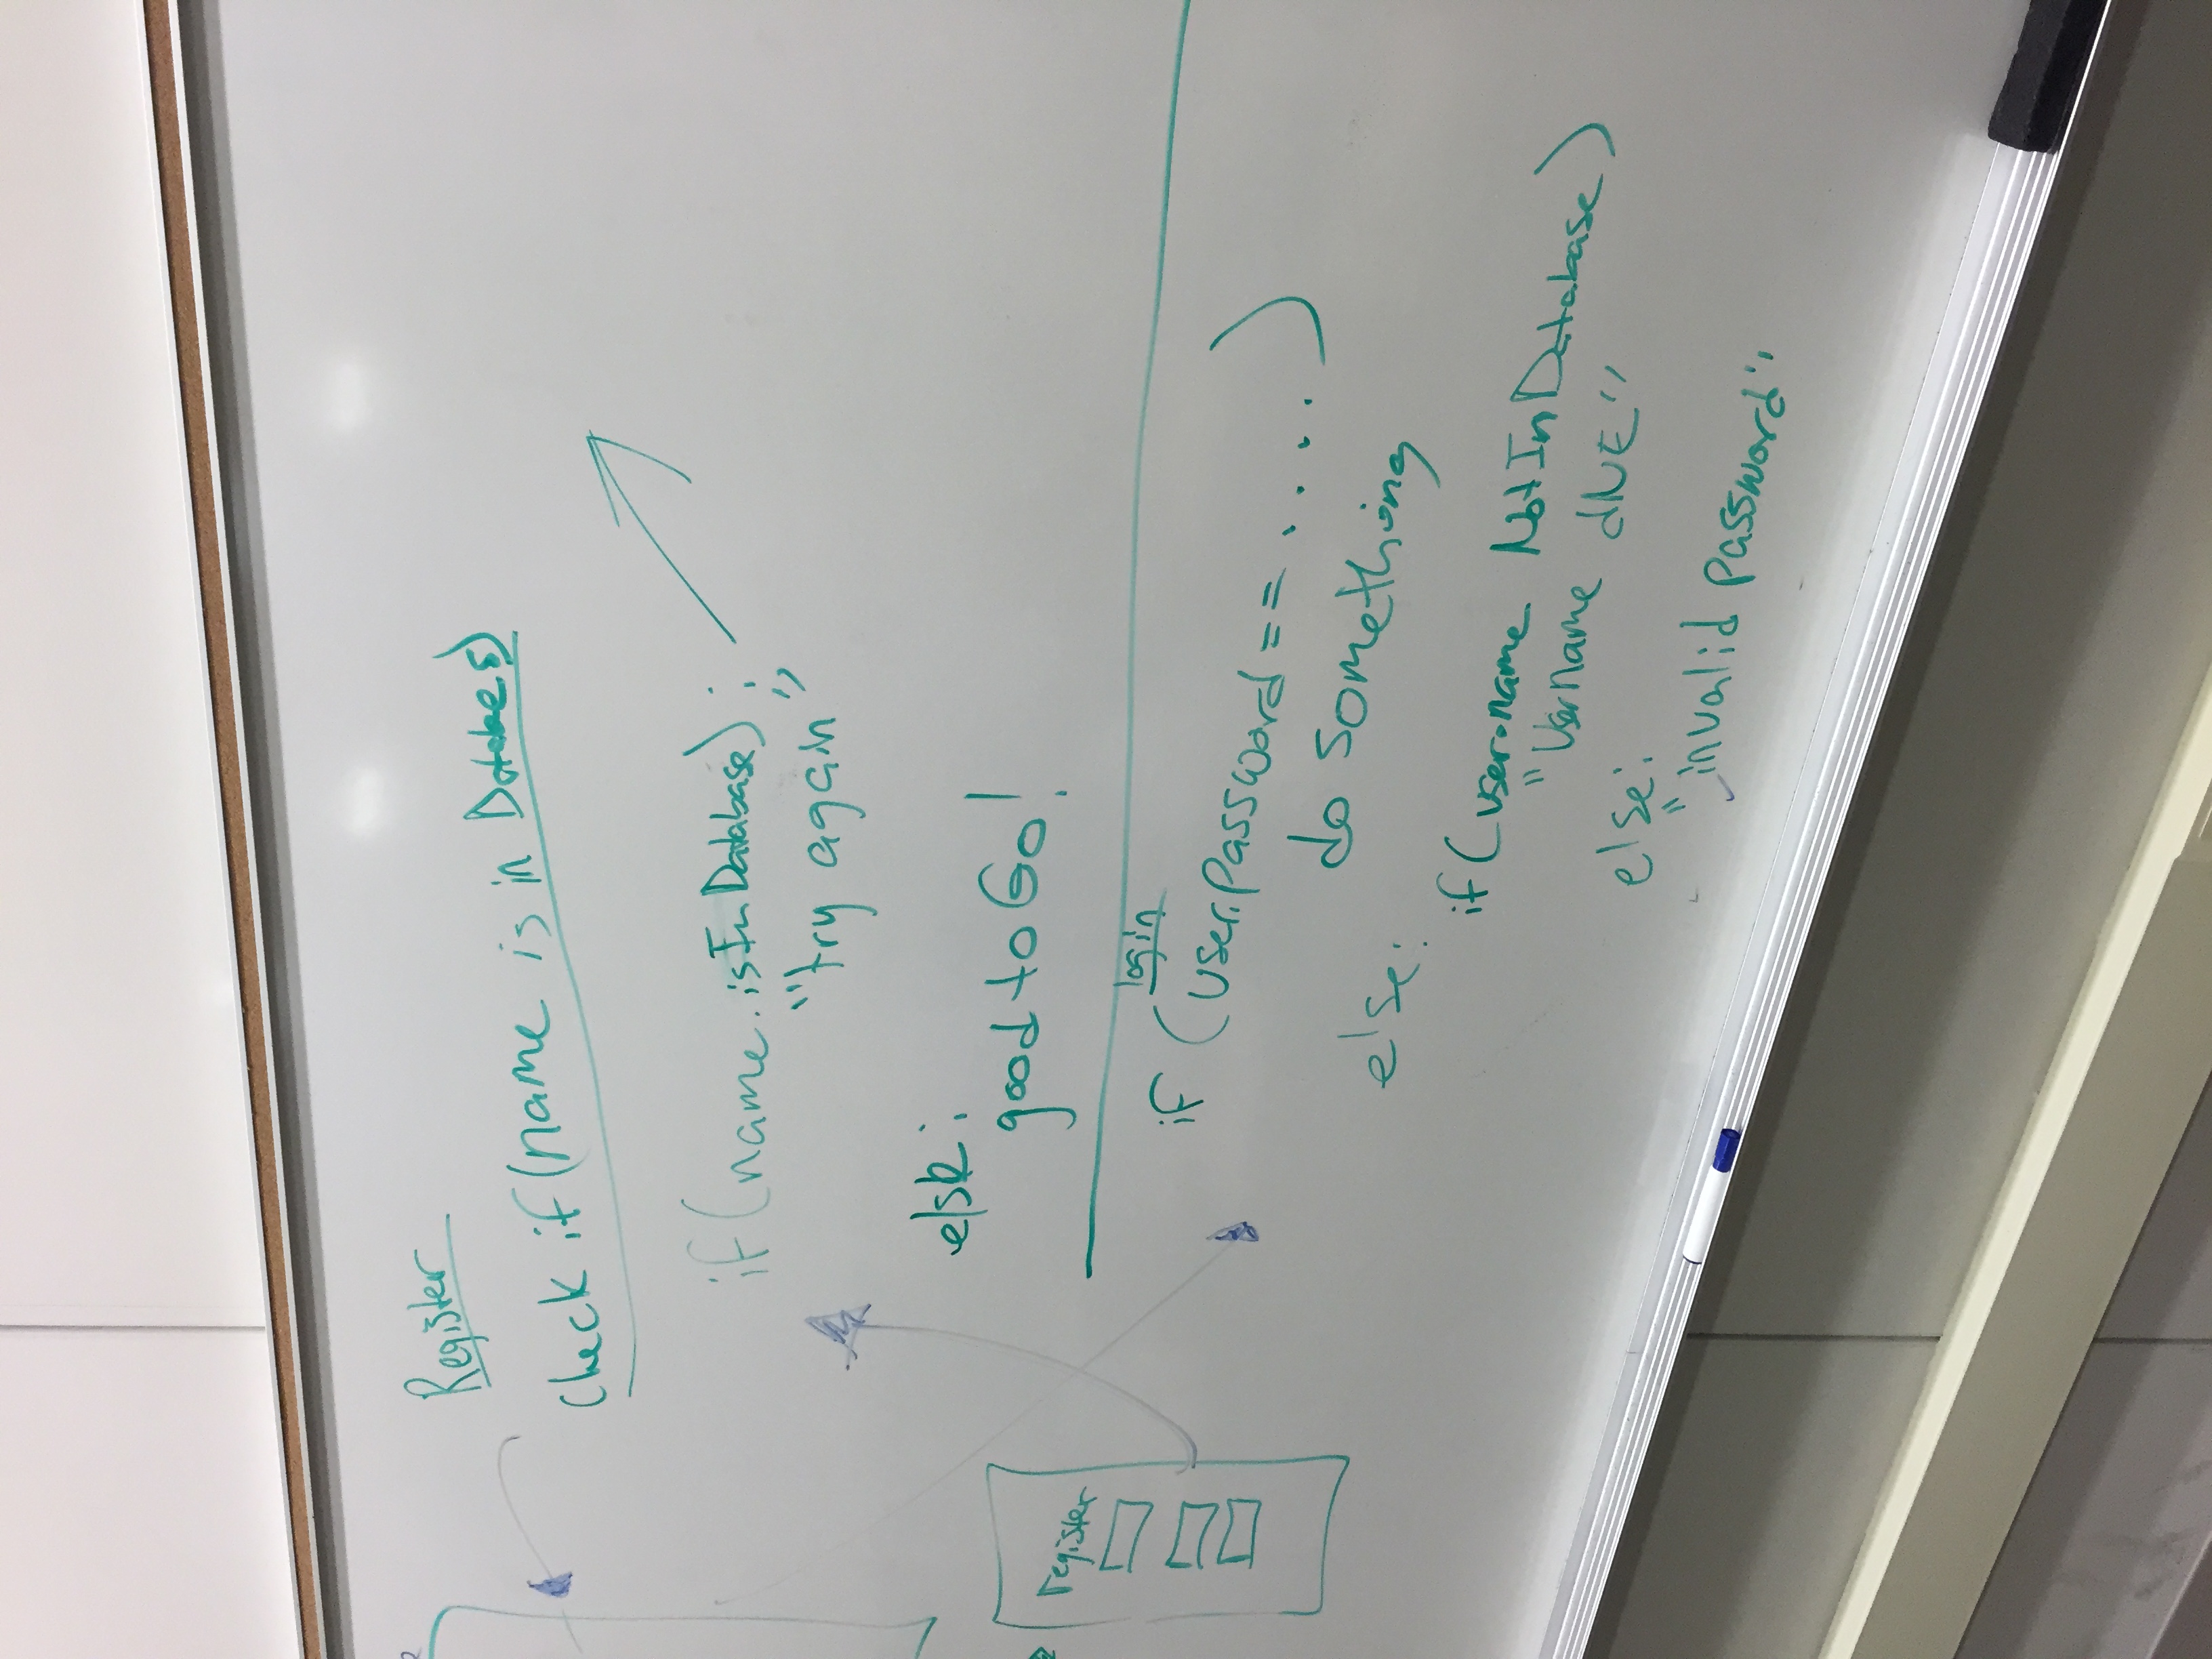 Register
Check if (name is in Databes)
if (name.isInDatabase) :
"try again"
else:
good to Go!
register
login
if (user.password == ....)
do something
else:
if (user.name NotInDatabase)
"Username dNE"
else:
"invalid password"